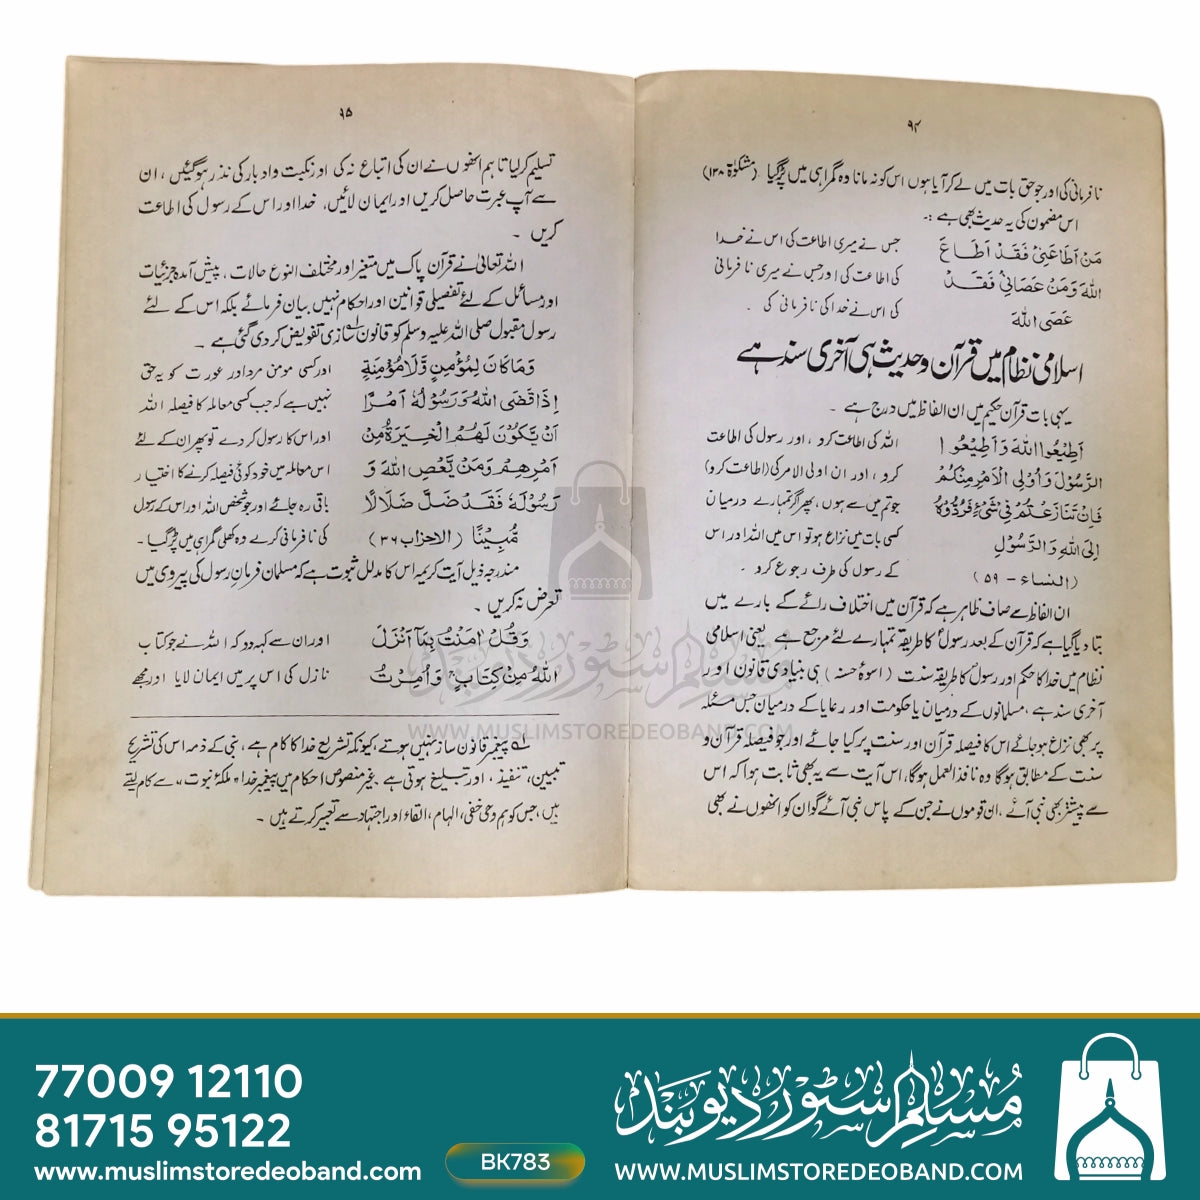 ۹۴
نافرمانی کی اور جو حق بات میں لے کر آیا ہوں اس کو نہ مانا وہ گمراہی میں پڑ گیا (مشکوٰۃ ۱۳۸)
اس مضمون کی یہ حدیث بھی ہے :۔
مَنْ اَطَاعَنِیْ فَقَدْ اَطَاعَ
اللہَ وَمَنْ عَصَانِیْ فَقَدْ
عَصَی اللہَ
جس نے میری اطاعت کی اس نے خدا
کی اطاعت کی اور جس نے میری نافرمانی
کی اس نے خدا کی نافرمانی کی ۔
اسلامی نظام میں قرآن و حدیث ہی آخری سند ہے
یہی بات قرآن حکیم میں ان الفاظ میں درج ہے ۔
اَطِیْعُوا اللہَ وَاَطِیْعُوا
الرَّسُوْلَ وَاُوْلِی الْاَمْرِ مِنْکُمْ
فَاِنْ تَنَازَعْتُمْ فِیْ شَیْءٍ فَرُدُّوْہُ
اِلَی اللہِ وَالرَّسُوْلِ
(النساء - ۵۹)
اللہ کی اطاعت کرو ، اور رسول کی اطاعت
کرو ، اور ان اولی الامر کی (اطاعت کرو)
جو تم میں سے ہوں، پھر اگر تمہارے درمیان
کسی بات میں نزاع ہو تو اس میں اللہ اور اس
کے رسول کی طرف رجوع کرو ۔
ان الفاظ سے صاف ظاہر ہے کہ قرآن میں اختلاف رائے کے بارے میں
بتا دیا گیا ہے کہ قرآن کے بعد رسولؐ کا طریقہ تمہارے لئے مرجع ہے یعنی اسلامی
نظام میں خدا کا حکم اور رسولؐ کا طریقہ سنت (اسوۂ حسنہ) ہی بنیادی قانون اور
آخری سند ہے ، مسلمانوں کے درمیان یا حکومت اور رعایا کے درمیان جس مسئلہ
پر بھی نزاع ہو جائے اس کا فیصلہ قرآن اور سنت پر کیا جائے اور جو فیصلہ قرآن و
سنت کے مطابق ہوگا وہ نافذ العمل ہوگا، اس آیت سے یہ بھی ثابت ہوا کہ اس
سے پیشتر بھی نبی آئے ، ان قوموں نے جن کے پاس نبی آئے گو ان کو انھوں نے بھی
۹۵
تسلیم کر لیا تاہم انھوں نے ان کی اتباع نہ کی اور نکبت و ادبار کی نذر ہو گئیں ، ان
سے آپ عبرت حاصل کریں اور ایمان لائیں، خدا اور اس کے رسول کی اطاعت
کریں ۔
اللہ تعالیٰ نے قرآن پاک میں متغیر اور مختلف النوع حالات ، پیش آمدہ جزئیات
اور مسائل کے لئے تفصیلی قوانین اور احکام نہیں بیان فرمائے بلکہ اس کے لئے
رسول مقبول صلی اللہ علیہ وسلم کو قانون سازی تفویض کر دی گئی ہے ۔
وَمَا کَانَ لِمُؤْمِنٍ وَّلَا مُؤْمِنَۃٍ
اِذَا قَضَی اللہُ وَرَسُوْلُہٗ اَمْرًا
اَنْ یَّکُوْنَ لَھُمُ الْخِیَرَۃُ مِنْ
اَمْرِھِمْ وَمَنْ یَّعْصِ اللہَ وَ
رَسُوْلَہٗ فَقَدْ ضَلَّ ضَلَالًا
مُّبِیْنًا (الاحزاب ۳۶)
اور کسی مومن مرد اور عورت کو یہ حق
نہیں ہے کہ جب کسی معاملہ کا فیصلہ اللہ
اور اس کا رسول کر دے تو پھر ان کے لئے
اس معاملہ میں خود کوئی فیصلہ کرنے کا اختیار
باقی رہ جائے اور جو شخص اللہ اور اس کے رسول
کی نافرمانی کرے وہ کھلی گمراہی میں پڑ گیا ۔
مندرجہ ذیل آیت کریمہ اس کا مدلل ثبوت ہے کہ مسلمان فرمانِ رسول کی پیروی میں
تعرض نہ کریں ۔
وَقُلْ اٰمَنْتُ بِمَآ اَنْزَلَ
اللہُ مِنْ کِتَابٍ وَّاُمِرْتُ
اور ان سے کہہ دو کہ اللہ نے جو کتاب
نازل کی اس پر میں ایمان لایا اور مجھے
لہ پیغمبر قانون ساز نہیں ہوتے، کیونکہ تشریع خدا کا کام ہے ، نبی کے ذمہ اس کی تشریح
تبیین، تنفیذ ، اور تبلیغ ہوتی ہے ، غیر منصوص احکام میں پیغمبر خدا "ملکۂ نبوت" سے کام لیتے
ہیں ، جس کو ہم وحی خفی، الہام، القاء اور اجتہاد سے تعبیر کرتے ہیں ۔
مسلم سٹور دیوبند
WWW.MUSLIMSTOREDEOBAND.COM
77009 12110
81715 95122
www.muslimstoredeoband.com
BK783
مسلم سٹور دیوبند
WWW.MUSLIMSTOREDEOBAND.COM